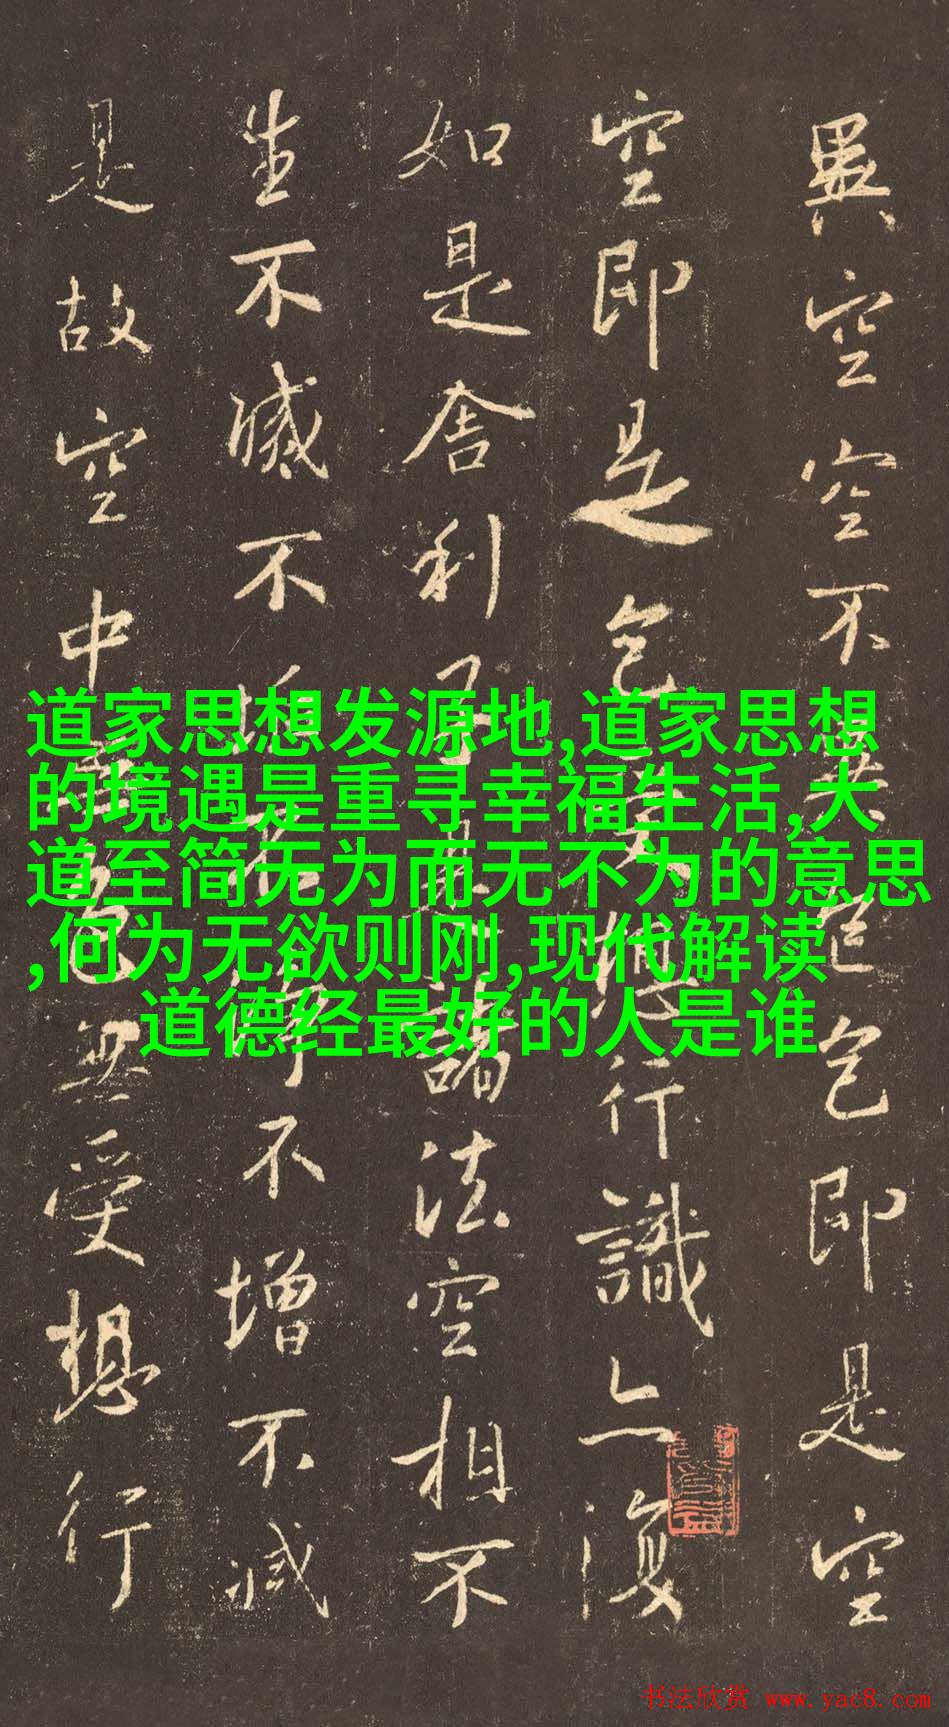 異空空不異色色即是空
空即是色受想行識亦復
如是舍利子是諸法空相不
生不滅不垢不淨不增不減
是故空中無色無受想行
道家思想发源地,道家思想
的境遇是重寻幸福生活,大
道至简无为而无不为的意思
,何为无欲则刚,现代解读
道德经最好的人是谁
书法欣赏 www.yac8.com